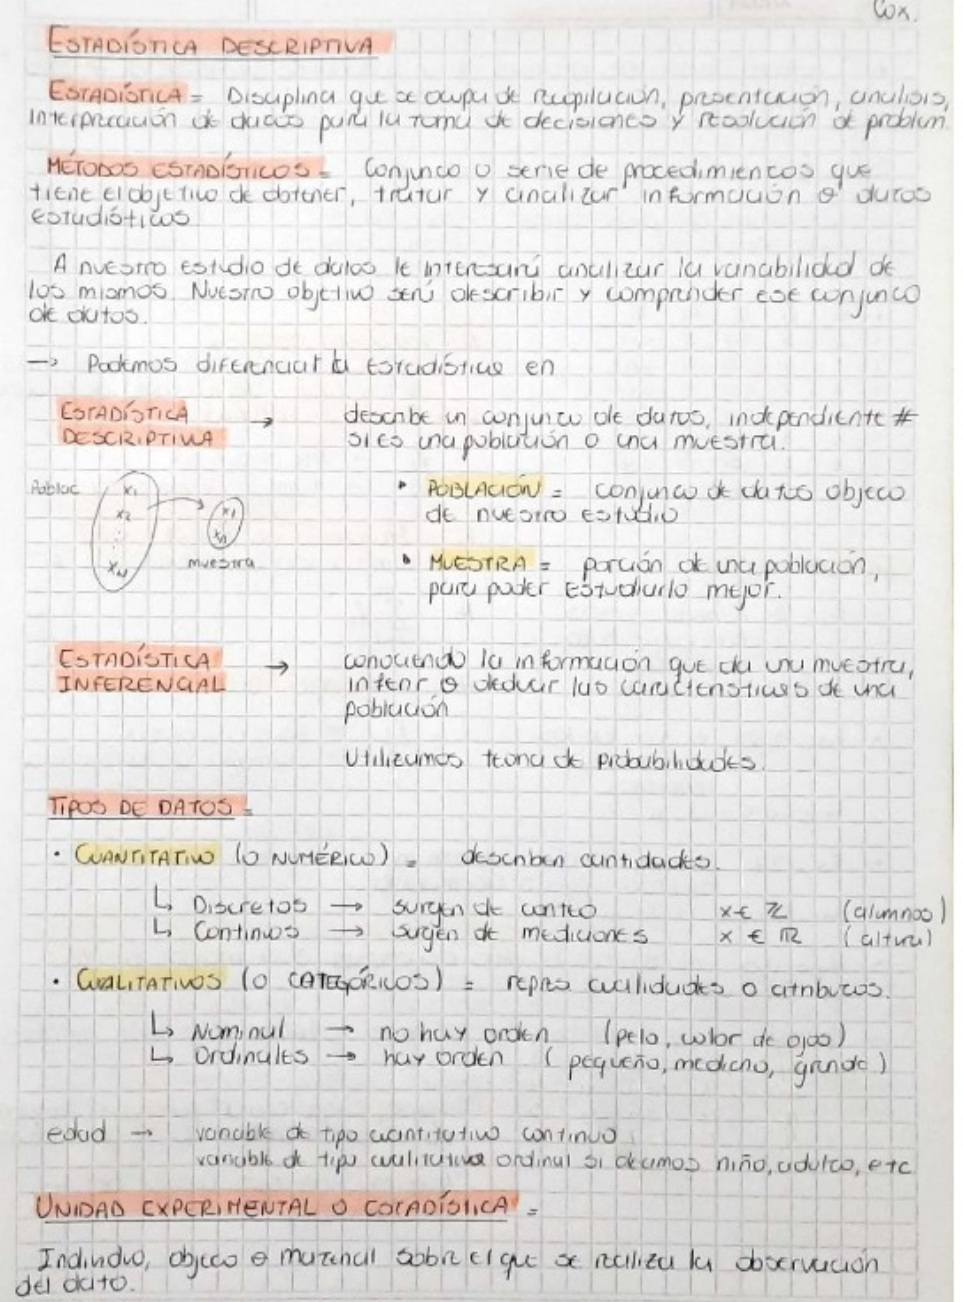 Cox.
ESTADÍSTICA DESCRIPTIVA
ESTADÍSTICA = Disciplina que se ocupa de recopilación, presentación, análisis,
interpretación de datos para la toma de decisiones y resolución de problem.
MÉTODOS ESTADÍSTICOS = Conjunto o serie de procedimientos que
tiene el objetivo de obtener, tratar y analizar información o datos
estadísticos
A nuestro estudio de datos le interesará analizar la variabilidad de
los mismos. Nuestro objetivo será describir y comprender ese conjunto
de datos.
→ Podemos diferenciar la Estadísticas en
ESTADÍSTICA → describe un conjunto de datos, independiente #
DESCRIPTIVA si es una población o una muestra.
Poblac
x₁
x₂
x_N
x₁
x_n
muestra
• POBLACIÓN = conjunto de datos objeto
de nuestro estudio
• MUESTRA = porción de una población,
para poder estudiarlo mejor.
ESTADÍSTICA → conociendo la información que da una muestra,
INFERENCIAL inferir o deducir las características de una
población
Utilizamos teoría de probabilidades.
TIPOS DE DATOS =
• CUANTITATIVO (O NUMÉRICO) = describen cantidades.
↳ Discretos → surgen de conteo x ∈ ℤ (alumnos)
↳ Continuos → surgen de mediciones x ∈ ℝ (altura)
• CUALITATIVOS (O CATEGÓRICOS) = repres cualidades o atributos.
↳ Nominal → no hay orden (pelo, color de ojos)
↳ Ordinales → hay orden (pequeño, mediano, grande)
edad → variable de tipo cuantitativo continuo
variable de tipo cualitativa ordinal si decimos niño, adulto, etc
UNIDAD EXPERIMENTAL O ESTADÍSTICA =
Individuo, objeto o material sobre el que se realiza la observación
del dato.